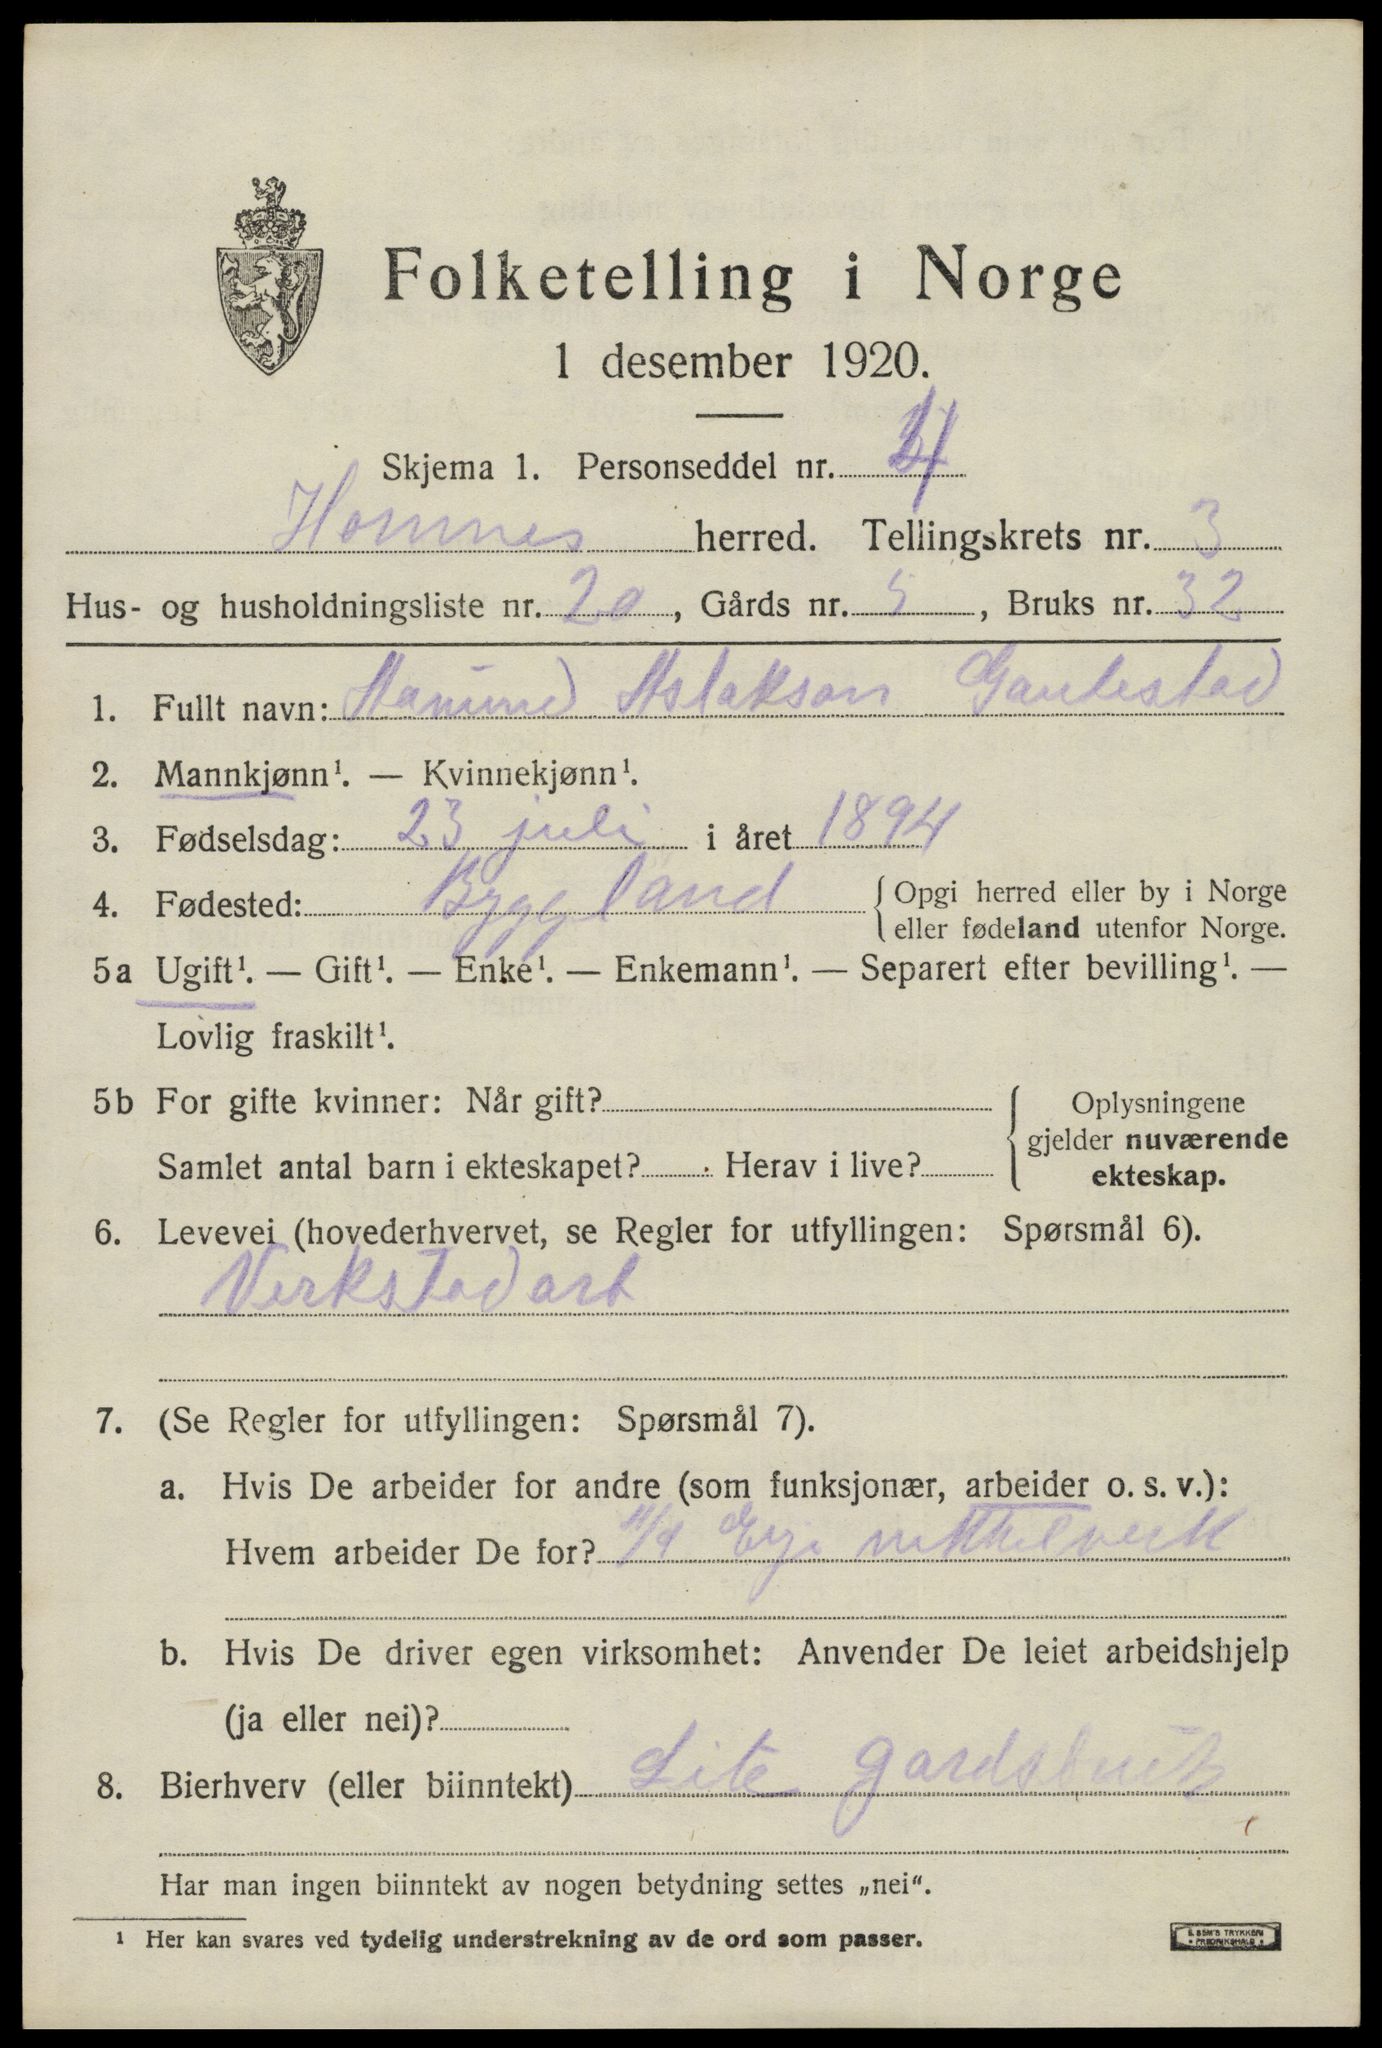 Folketelling i Norge
1 desember 1920.
Skjema 1. Personseddel nr. 4
Hornnes herred. Tellingskrets nr. 3
Hus- og husholdningsliste nr. 20, Gårds nr. 5, Bruks nr. 32
1. Fullt navn: Aslakson Gautestad
2. Mannkjønn¹. — Kvinnekjønn¹.
3. Fødselsdag: 23 juli i året 1894
4. Fødested: Byggland {Opgi herred eller by i Norge
eller fødeland utenfor Norge.
5a Ugift¹. — Gift¹. — Enke¹. — Enkemann¹. — Separert efter bevilling¹. —
Lovlig fraskilt¹.
5b For gifte kvinner: Når gift? { Oplysningene
gjelder nuværende
Samlet antal barn i ekteskapet? Herav i live?
ekteskap.
6. Levevei (hovederhvervet, se Regler for utfyllingen: Spørsmål 6).
Verkstadarb
7. (Se Regler for utfyllingen: Spørsmål 7).
a. Hvis De arbeider for andre (som funksjonær, arbeider o. s. v.):
Hvem arbeider De for? A/S Evje nikkelverk
b. Hvis De driver egen virksomhet: Anvender De leiet arbeidshjelp
(ja eller nei)?
8. Bierhverv (eller biinntekt) Lite gardsbruk
Har man ingen biinntekt av nogen betydning settes „nei“.
¹ Her kan svares ved tydelig understrekning av de ord som passer.
E. SEM'S TRYKKERI
• FREDRIKSHALD •